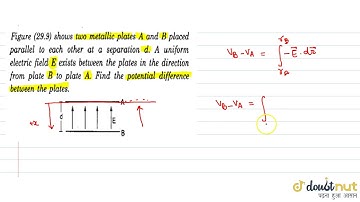 Figure (29.9) shows two metallic plates A and B placed
parallel to each other at a separation d. A uniform
electric field E exists between the plates in the direction
from plate B to plate A. Find the potential difference
between the plates.
A
+x
d
E
B
V_B - V_A = ∫_{r_A}^{r_B} -E⃗ . dr⃗
V_B - V_A = ∫
doubtnut
पढ़ना हुआ आसान